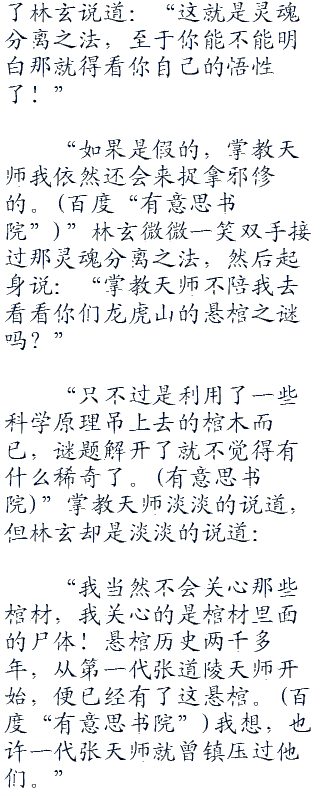 了林玄说道：“这就是灵魂
分离之法，至于你能不能明
白那就得看你自己的悟性
了！”
“如果是假的，掌教天
师我依然还会来捉拿邪修
的。(百度“有意思书
院”)”林玄微微一笑双手接
过那灵魂分离之法，然后起
身说：“掌教天师不陪我去
看看你们龙虎山的悬棺之谜
吗？”
“只不过是利用了一些
科学原理吊上去的棺木而
已，谜题解开了就不觉得有
什么稀奇了。(有意思书
院)”掌教天师淡淡的说道，
但林玄却是淡淡的说道：
“我当然不会关心那些
棺材，我关心的是棺材里面
的尸体！悬棺历史两千多
年，从第一代张道陵天师开
始，便已经有了这悬棺。(百
度“有意思书院”)我想，也
许一代张天师就曾镇压过他
们。”